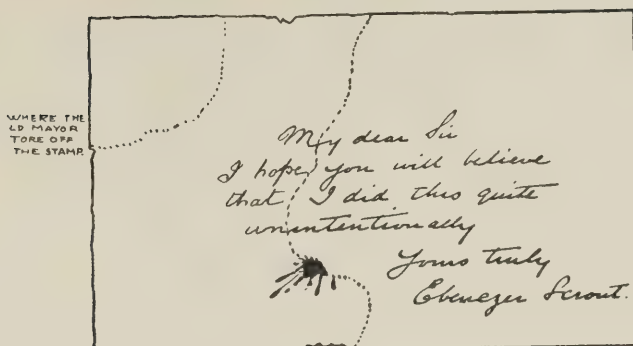 WHERE THE
LD MAYOR
TORE OFF
THE STAMP.
My dear Sir
I hope you will believe
that I did this quite
unintentionally
Yours truly
Ebenezer Scrout.